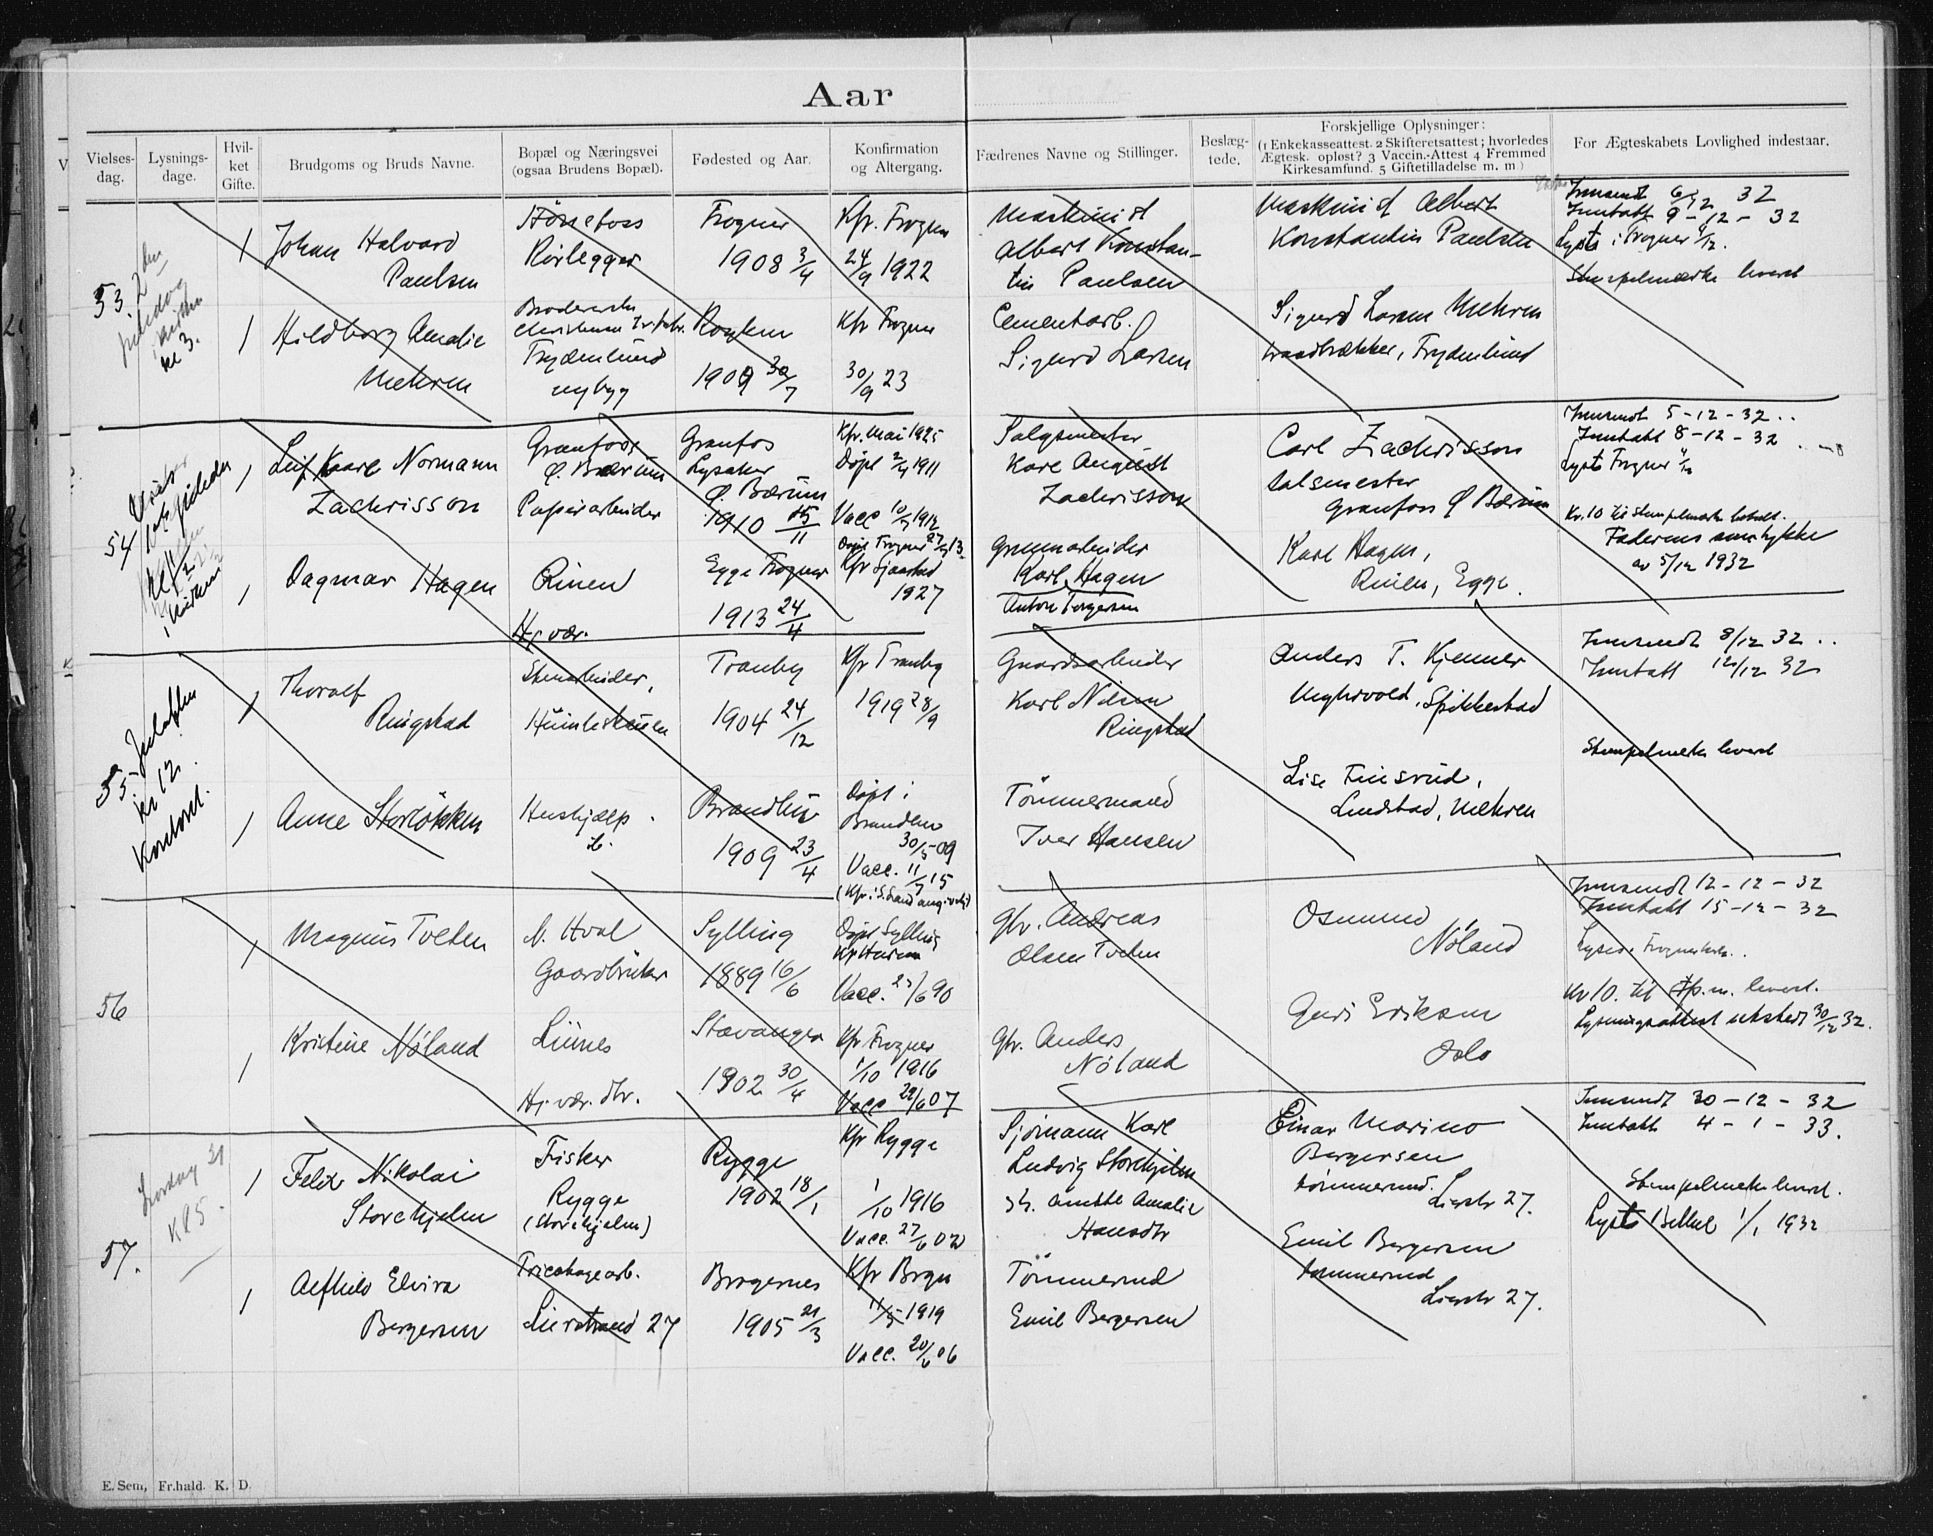 Aar
Vielses-dag.
Lysnings-dage.
Hvil-ket Gifte.
Brudgoms og Bruds Navne.
Bopæl og Næringsvei (ogsaa Brudens Bopæl).
Fødested og Aar.
Konfirmation og Altergang.
Fædrenes Navne og Stillinger.
Beslæg-tede.
Forskjellige Oplysninger: (1 Enkekasseattest. 2 Skifteretsattest; hvorledes Ægtesk. opløst? 3 Vaccin.-Attest 4 Fremmed Kirkesamfund. 5 Giftetilladelse m. m)
For Ægteskabets Lovlighed indestaar.
53
2den
juledag
kl 3.
1
Johan Halvard
Paulsen
Hönefoss
Rörlegger
Frogner
1908 3/4
Kfr. Frogner
24/9 1922
Maskinist
Albert Konstan-
tin Paulsen
Maskinist Albert
Konstantin Paulsen
Innsendt 6/12 32
Inntatt 9-12-32
Lyst i Frogner
Stempelmerke levert
1
Hildborg Amalie
Mehren
Frydenlund
nybyg
Röyken
1909 30/7
Kfr Frogner
30/9 23
Cementarb.
Sigurd Larsen
Sigurd Larsen Mehren
traadtrækker, Frydenlund
54
1
Leif Kaare Normann
Zachrisson
Granfoss
Ø. Bærum
Papirarbeider
Granfos
Lysaker
Ø. Bærum
1910 15/11
Kfr. Mai 1925
Döpt 2/4 1911
Vacc 10/7 1912
Salgsmester
Karl August
Zachrisson
Carl Zachrisson
salsmester
Granfoss Ø Bærum
Innsendt 5-12-32
Inntatt 8-12-32
Lyst Frogner
Kr. 10 til Stempelmerke betalt.
Faderens samtykke
av 5/12 1932
1
Dagmar Hagen
Rinen
Hj. vær.
Egge Frogner
1913 24/4
Döpt Frogner 27/7 13.
Kfr Sjaastad
1927
Grubearbeider
Karl Hagen
Anton Torgersen
Karl Hagen,
Rinen, Egge.
55.
Julaften
kl 12.
Kontoret.
1
Thoralf
Ringstad
Stenarbeider,
Tranby
1904 24/12
Kfr Tranby
1919 28/9
Gaardsarbeider
Karl Nilsen
Ringstad
Anders T. Kjenner
Spikkestad
Innsendt 8/12 32
Inntatt 12/12 32
Stempelmerke levert
1
Anne Storlökken
Hushjælp
L.
Brandbu
1909 23/4
Döpt i
Brandbu
30/5-09
Vacc. 11/7 15
Tömmermand
Iver Hansen
Lise Finsrud,
Lindstad, Mehren
56
1
Magnus Tveten
N. Hval
Gaardbruker
Sylling
1889 16/6
Döpt Sylling
Kfr Hurum
Vacc. 27/6 90
Gbr. Andreas
Olsen Tveten
Osmund
Nöland
Innsendt 12-12-32
Inntatt 15-12-32
Kr 10. til stp.m. levert.
Lysningsattest utstedt 30/12 32.
1
Kristine Nöland
Linnes
Hj. vær. dtr.
Stavanger
1902 30/4
Kfr Frogner
1/10 1916
Vacc 22/6 07
Gbr. Anders
Nöland
Guri Eriksen
Oslo
57.
Lördag 21
Kl 5.
1
Felix Nikolai
Storehjelm
Fisker
Rygge
(Storehjelm)
Rygge
1902 18/1
Kfr Rygge
1/10 1916
Vacc. 27/6 02
Sjömann Karl
Ludvig Storehjelm
Amalie
Hansdtr
Einar Marino
Bergersen
tömmermd.
Lierstr 27.
Innsendt 30-12-32
Inntatt 4-1-33.
Stempelmerke levert.
Lyst 1/1 1932
1
Alfhild Elvira
Bergersen
Tricotagearb.
Lierstrand 27
Bragernes
1905 21/3
Kfr Brgn
11/5 1919
Vacc. 20/6 06
Tömmermd
Emil Bergersen
Emil Bergersen
tömmermd
Lierstr 27.
E. Sem, Fr.hald. K. D.